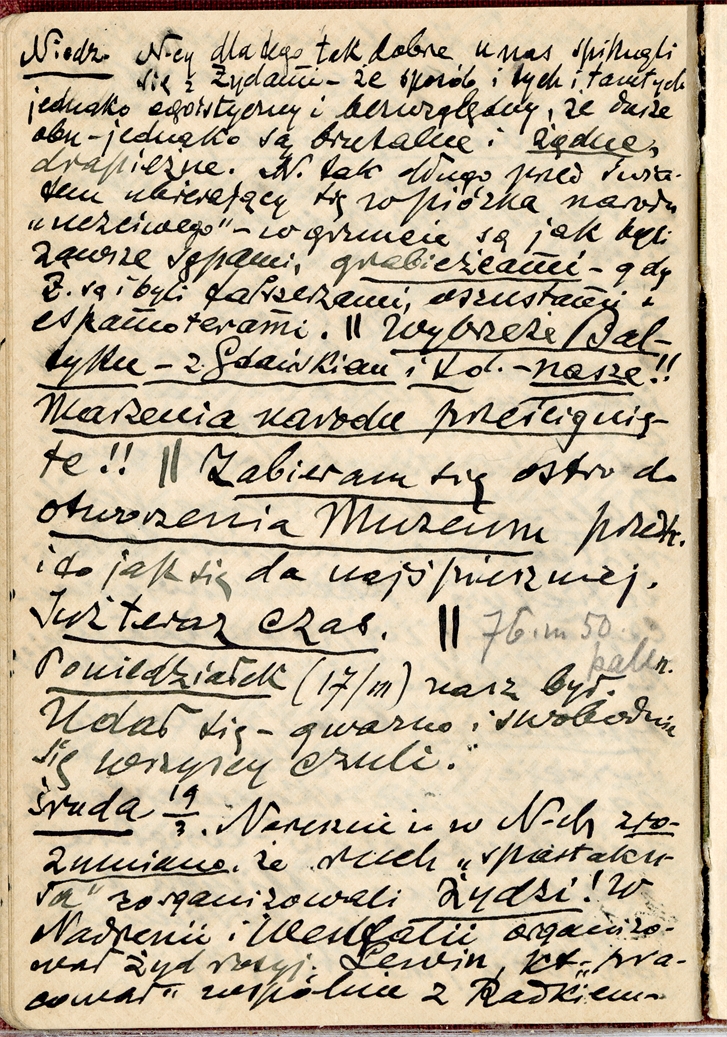 Niedz. N-cy dlatego tak dobrze u nas spiknęli
się z Żydami – że sposób i tych i tamtych
jednako egoistyczny i bezwzględny, że dusze
obu – jednako są brutalne i żądne,
drapieżne. N. tak długo przed świa-
tem ubierający się w piórka narodu
„uczciwego" – w gruncie są jak byli
zawsze sępami, grabieżcami – gdy
Ż. są i byli fałszerzami, oszustami i
eskamoterami. || Wybrzeże Bał-
tyku – z Gdańskiem i t.d. – nasze!!
Marzenia narodu prześcignię-
te!! || Zabieram się ostro do
otworzenia Muzeum
i to jak się da najśpieszniej.
Już teraz czas. || 76.m 50.
Poniedziałek (17/III) nasz był.
Udał się – gwarno i swobodnie
się wszyscy czuli.
Środa 19/3. Nareszcie i w N-ch zro-
zumiano, że ruch „spartaku-
sa" zorganizowali Żydzi! W
Nadrenii i Westfalii organizo-
wał żyd rosyj. Lewin, kt. „pra-
cował" wspólnie z Radkiem –